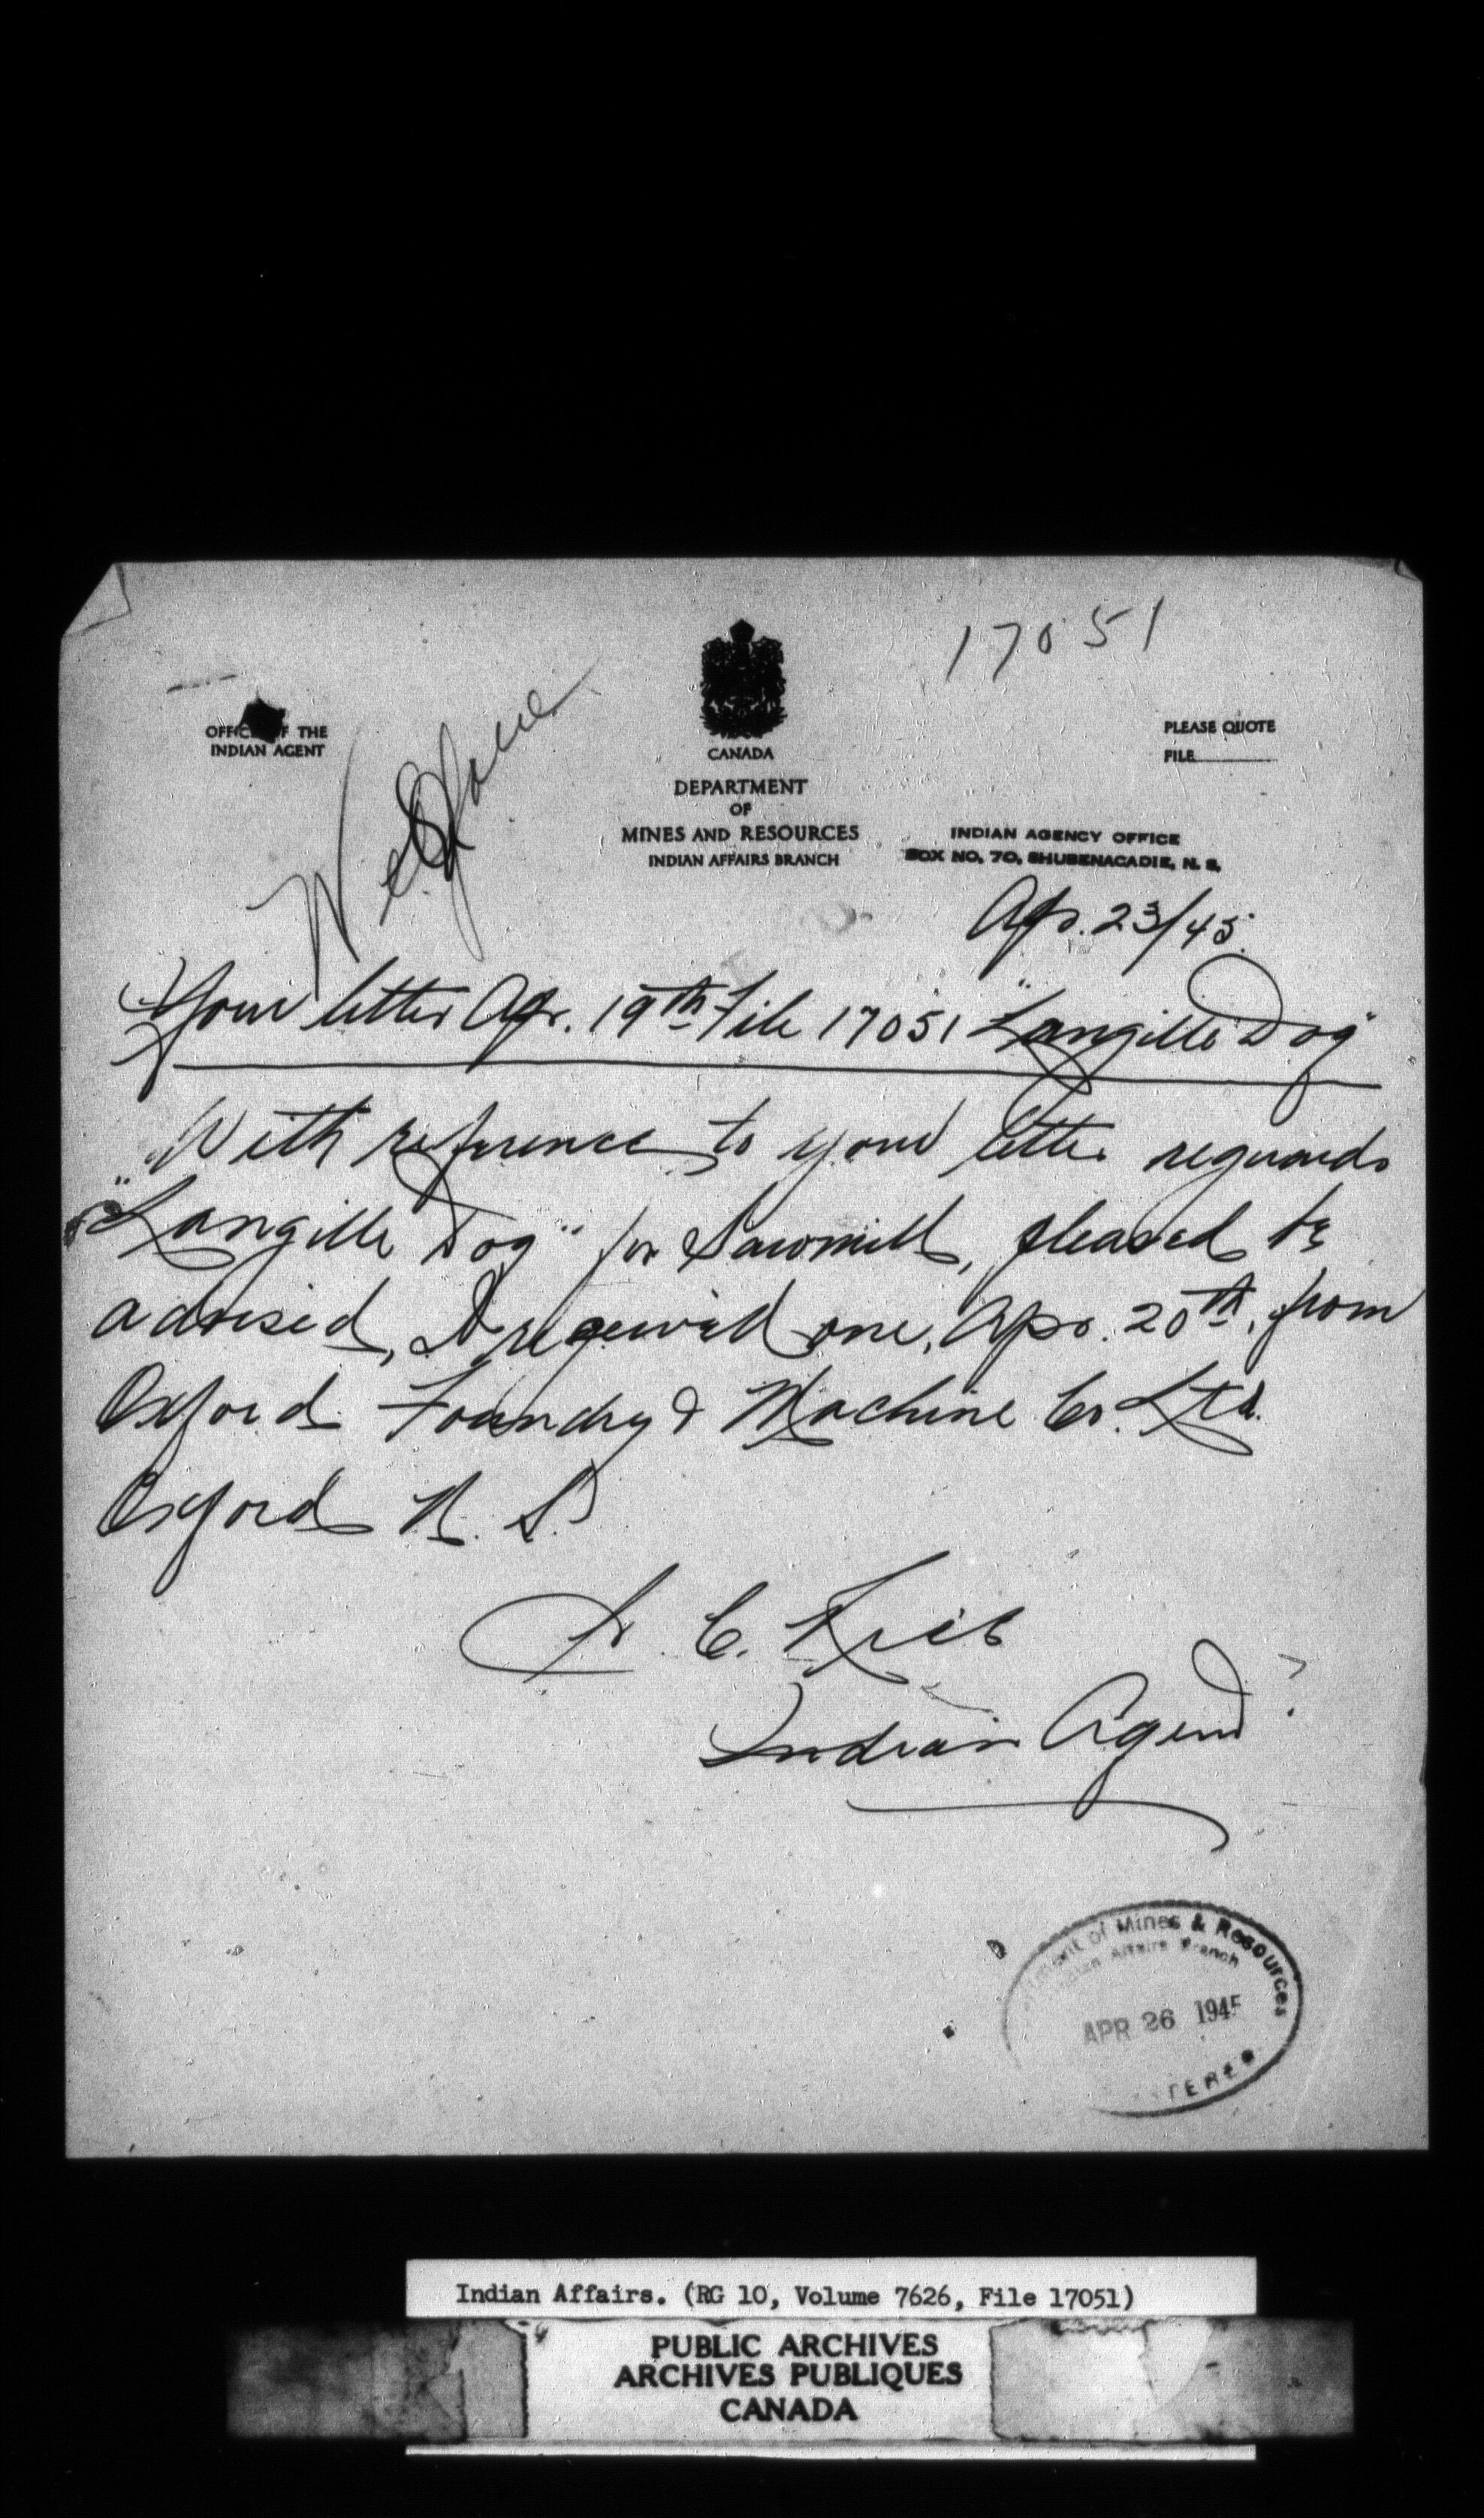 17051
OFFICE OF THE
INDIAN AGENT
CANADA
DEPARTMENT
OF
MINES AND RESOURCES
INDIAN AFFAIRS BRANCH
PLEASE QUOTE
FILE
INDIAN AGENCY OFFICE
BOX NO. 70, SHUBENACADIE, N. S.
Apr. 23/45.
Your letter Apr. 19th File 17051 "Langille Dog"
With reference to your letter reguards
"Langille Dog" for Sawmill, pleased be
advised, I received one, Apr. 20th, from
Oxford Foundry & Machine Co. Ltd.
Oxford N. S.
H. C. Rice
Indian Agent
Department of Mines & Resources
Indian Affairs Branch
APR 26 1945
Indian Affairs. (RG 10, Volume 7626, File 17051)
PUBLIC ARCHIVES
ARCHIVES PUBLIQUES
CANADA